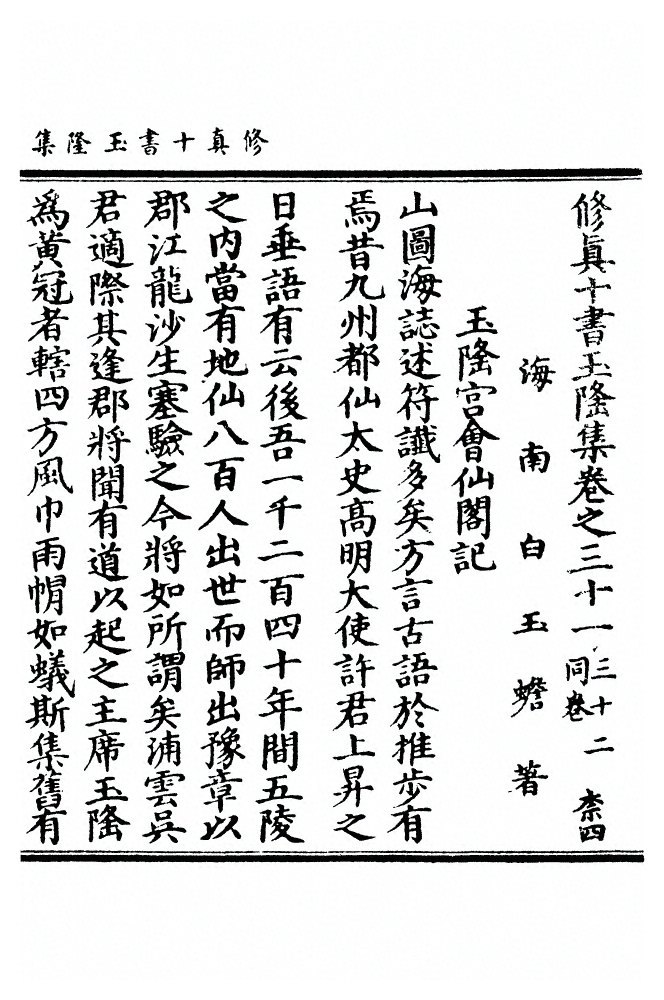 修真十書玉隆集
修真十書玉隆集卷之三十一 三十二同卷 柰四
海南白玉蟾著
玉隆宮會仙閣記
山圖海誌述符讖多矣方言古語於推步有
焉昔九州都仙太史高明大使許君上昇之
日垂語有云後吾一千二百四十年間五陵
之内當有地仙八百人出世而師出豫章以
郡江龍沙生塞驗之今將如所謂矣浦雲吳
君適際其逢郡將聞有道以起之主席玉隆
爲黃冠者轄四方風巾雨帽如蟻斯集舊有